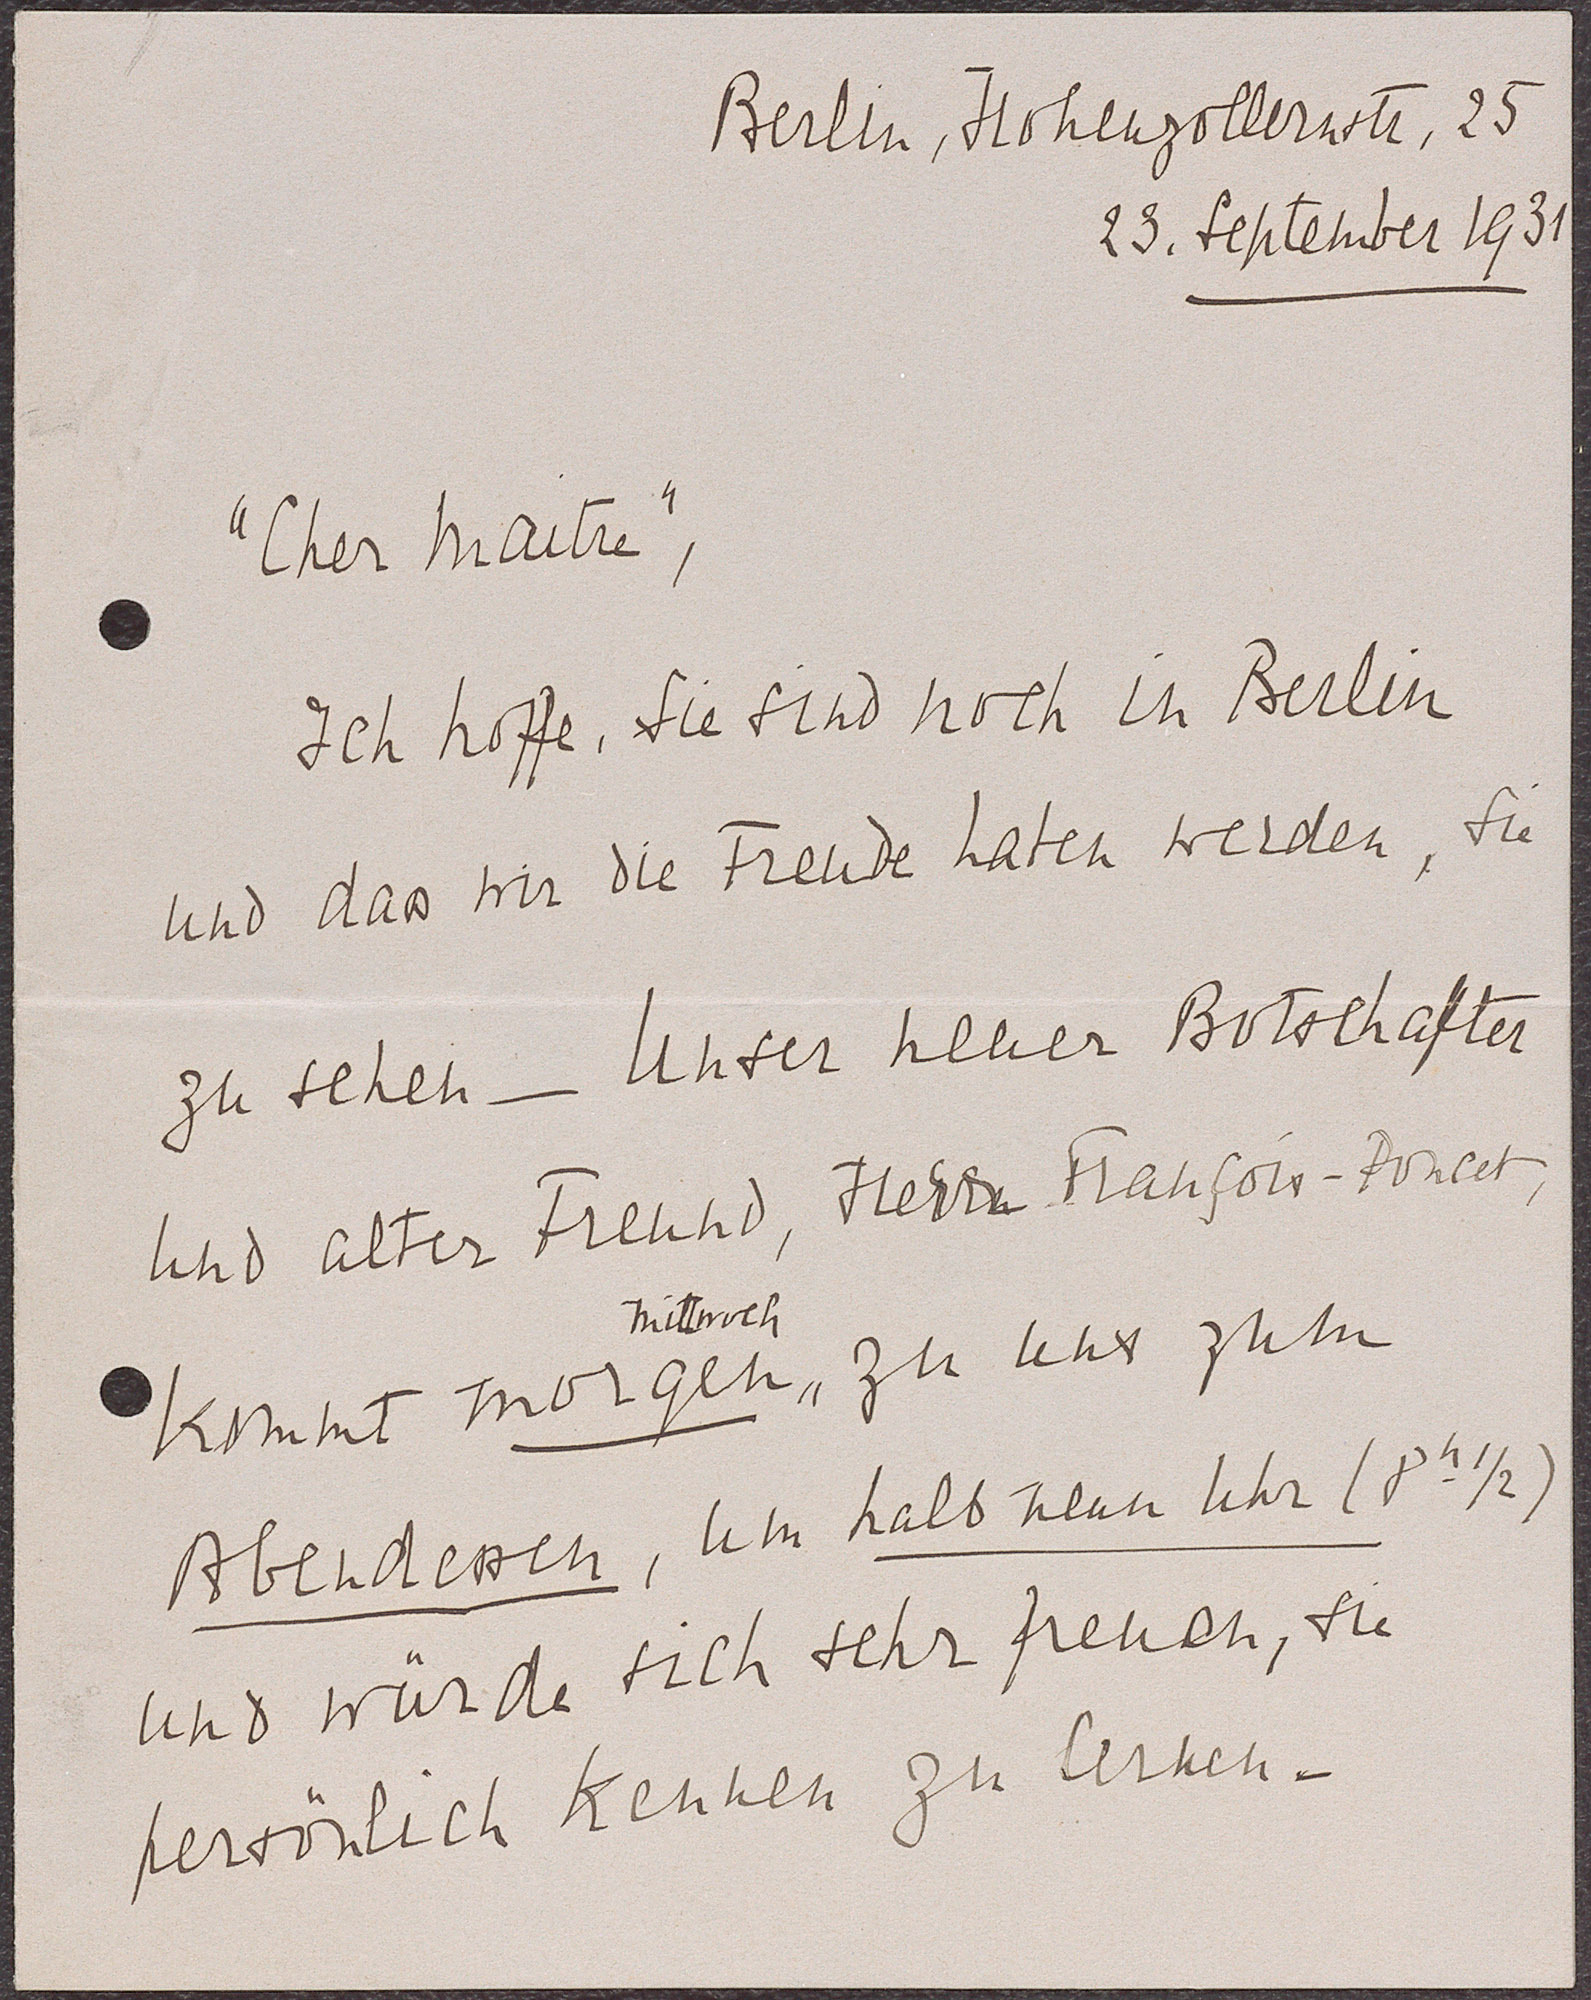 Berlin, Hohenzollernstr, 25
23. September 1931
"Cher Maitre",
Ich hoffe, Sie sind noch in Berlin
und dass wir die Freude haben werden, Sie
zu sehen — Unser neuer Botschafter
und alter Freund, Herrn François-Poncet,
Mittwoch
kommt morgen,, zu uns zum
Abendessen, um halb neun Uhr (8h 1/2)
und würde sich sehr freuen, Sie
persönlich kennen zu lernen -